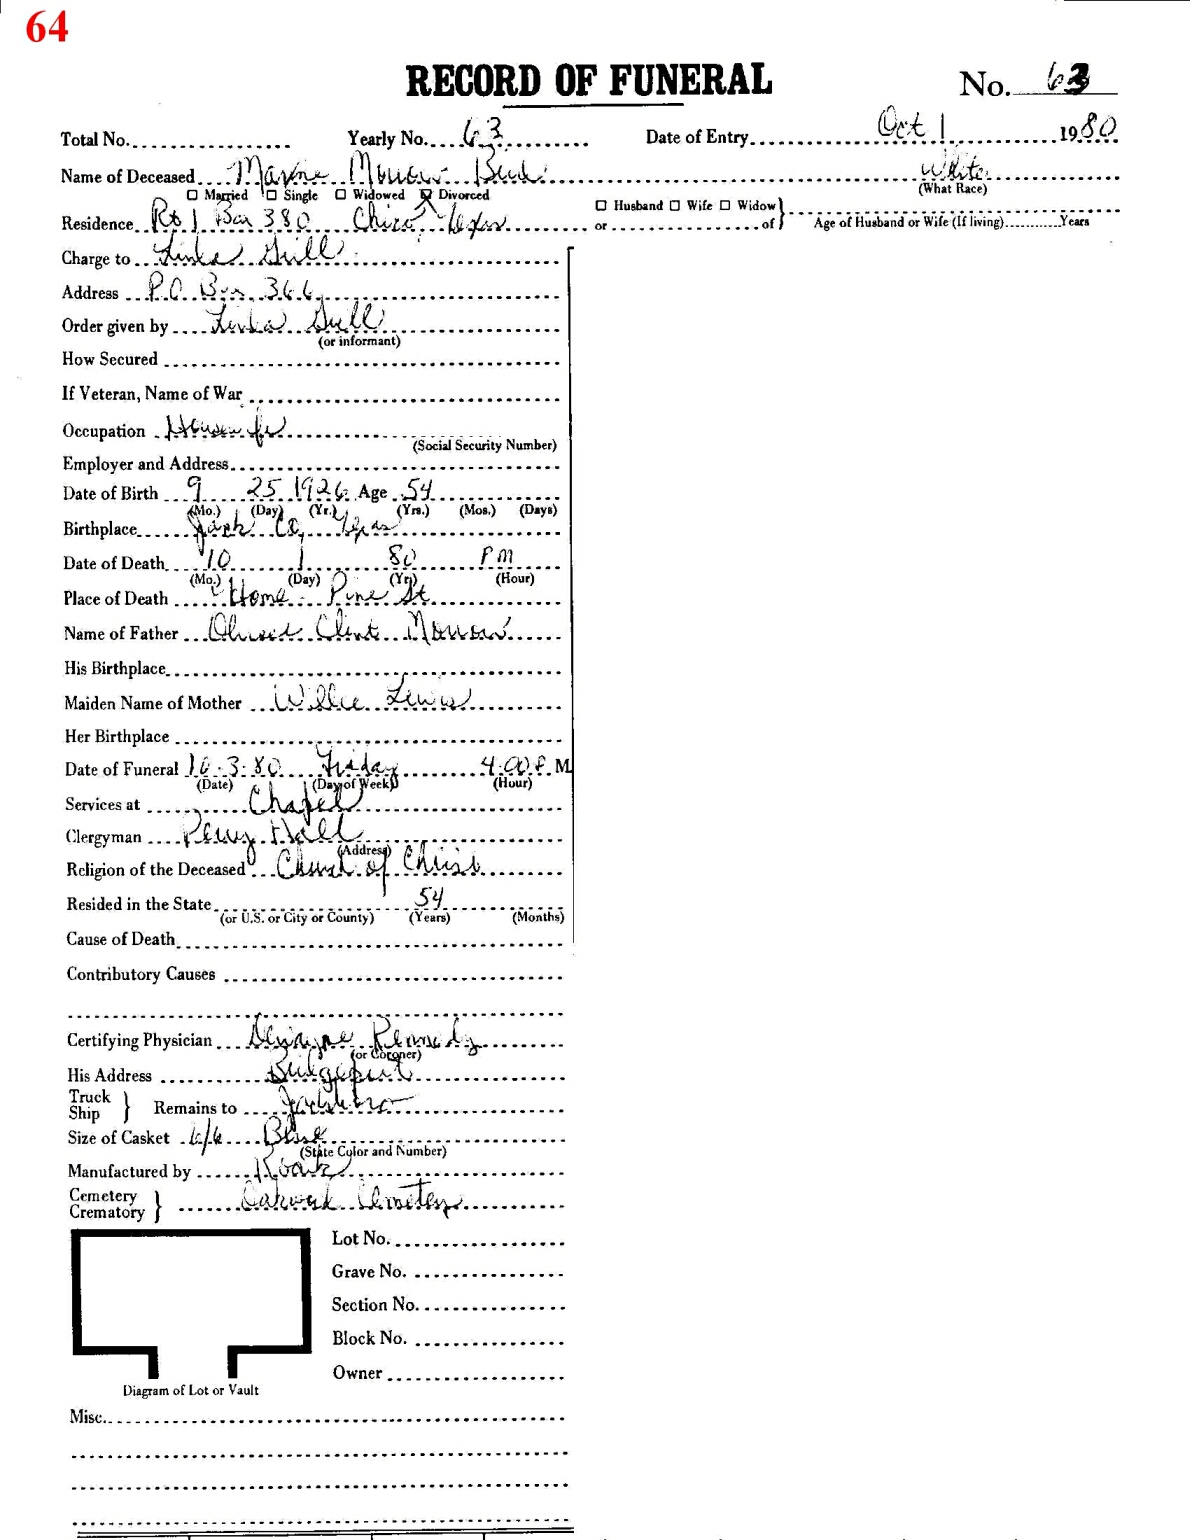 64
RECORD OF FUNERAL
No. 63
Total No. Yearly No. 63 Date of Entry Oct 1 1980
Name of Deceased Maxine Morrow White
☐ Married ☐ Single ☐ Widowed ☑ Divorced (What Race)
Residence Rt 1 Box 380 Chico, Texas ☐ Husband ☐ Wife ☐ Widow} or of} Age of Husband or Wife (If living) Years
Charge to Linda Gill
Address P.O. Box 366
Order given by Linda Gill
(or informant)
How Secured
If Veteran, Name of War
Occupation Housewife
(Social Security Number)
Employer and Address
Date of Birth 9 25 1926 Age 54
(Mo.) (Day) (Yr.) (Yrs.) (Mos.) (Days)
Birthplace Jack Co, Texas
Date of Death 10 1 80 PM
(Mo.) (Day) (Yr) (Hour)
Place of Death Home - Pine St
Name of Father Clint Morrow
His Birthplace
Maiden Name of Mother Willie Lewis
Her Birthplace
Date of Funeral 10-3-80 Friday 4:00 P. M.
(Date) (Day of Week) (Hour)
Services at Chapel
Clergyman Perry Hall
(Address)
Religion of the Deceased Church of Christ
Resided in the State 54
(or U.S. or City or County) (Years) (Months)
Cause of Death
Contributory Causes
Certifying Physician Dwayne Kennedy
(or Coroner)
His Address Bridgeport
Truck Ship } Remains to Jacksboro
Size of Casket 6/6 Blue
(State Color and Number)
Manufactured by
Cemetery Crematory } Oakwood Cemetery
Lot No.
Grave No.
Section No.
Block No.
Owner
Diagram of Lot or Vault
Misc.